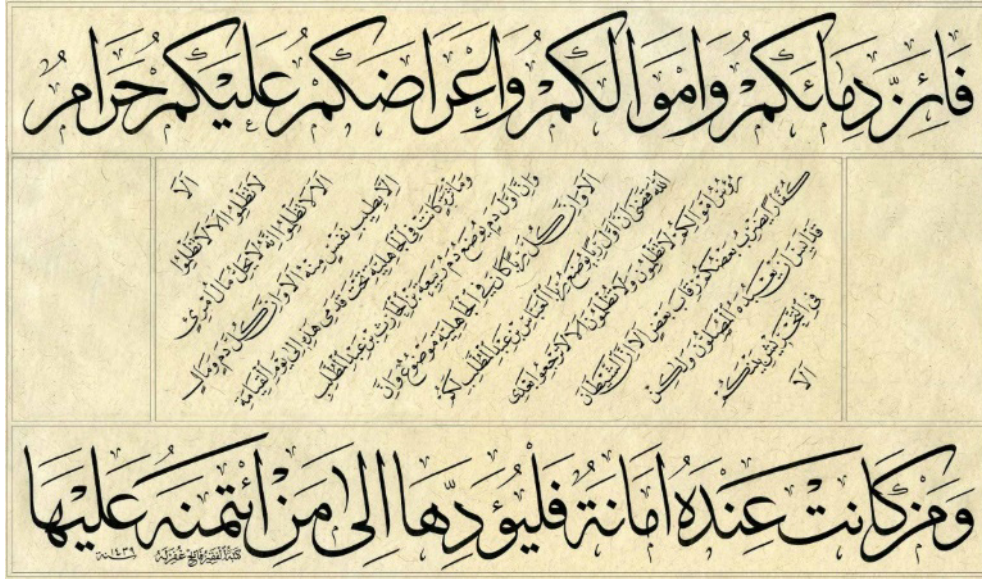 فَاِنَّ دِمَائَكُمْ وَاَمْوَالَكُمْ وَاَعْرَاضَكُمْ عَلَيْكُمْ حَرَامٌ
الا
لا تظلموا الا لا تظلموا
الا لا تظلموا انه لا يحل مال امرئ
الا بطيب نفس منه الا وان كل دم ومال
ومأثرة كانت في الجاهلية تحت قدمي هذه الى يوم القيامة
وان اول دم يوضع دم ربيعة بن الحارث بن عبد المطلب
الا وان كل ربا كان في الجاهلية موضوع وان
الله قضى ان اول ربا يوضع ربا العباس بن عبد المطلب لكم
رؤس اموالكم لا تظلمون ولا تظلمون الا لا ترجعوا بعدي
كفارا يضرب بعضكم رقاب بعض الا ان الشيطان
قد ايس ان يعبده المصلون ولكن
في التحريش بينكم
الا
وَمَنْ كَانَتْ عِنْدَهُ اَمَانَةٌ فَلْيُؤَدِّهَا اِلَى مَنِ ائْتَمَنَهُ عَلَيْهَا
كتبه الفقير فاتح غفر له سنة